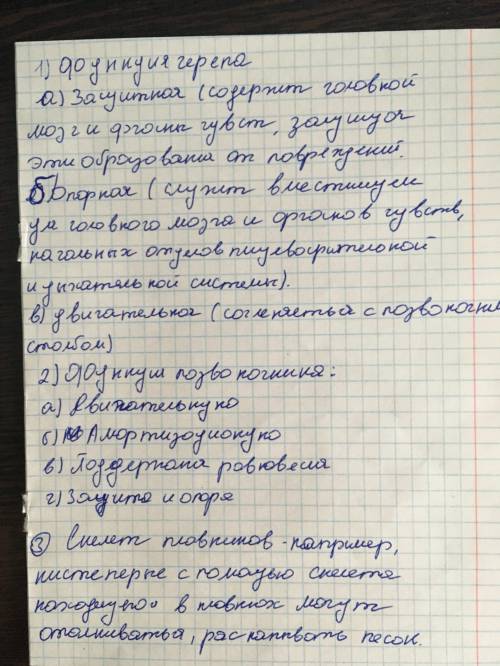 1) Функция черепа
а) Защитная (содержит головной
мозг и органы чувст, защищая
эти образования от повреждений.
б) Опорная (служит вместилищем
ум головного мозга и органов чувств,
начальных отделов пищеварительной
и дыхательной системы).
в) двигательная (согленяеться с позвоночным
столбом)
2) Функции позвоночника:
а) Двигательную
б) Амортизационную
в) Поддержана равювесия
г) Защита и опора
3) Скелет плавников - например,
кистеперые с помощью скелета
находящегося в плавниках могут
отталкиваться, раскапывать песок.